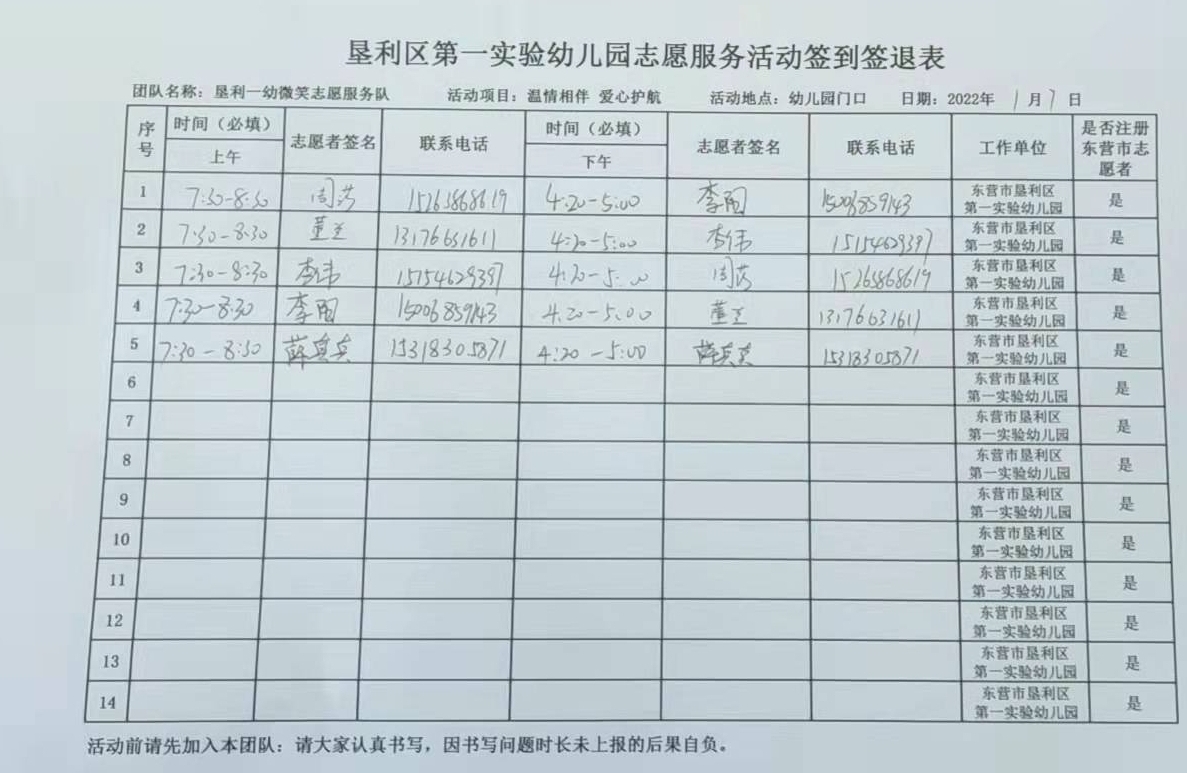 垦利区第一实验幼儿园志愿服务活动签到签退表
团队名称：垦利一幼微笑志愿服务队 活动项目：温情相伴 爱心护航 活动地点：幼儿园门口 日期：2022年 1月7日
序号 时间（必填） 上午 志愿者签名 联系电话 时间（必填） 下午 志愿者签名 联系电话 工作单位 是否注册东营市志愿者
1 7:30-8:30 15265868619 4:20-5:00 李 15006859143 东营市垦利区第一实验幼儿园 是
2 7:30-8:30 董 13176631611 4:20-5:00 李伟 15154629397 东营市垦利区第一实验幼儿园 是
3 7:30-8:30 李伟 15154629397 4:20-5:00 15265868619 东营市垦利区第一实验幼儿园 是
4 7:30-8:30 李 15006859143 4:20-5:00 董 13176631611 东营市垦利区第一实验幼儿园 是
5 7:30-8:30 薛 15318305871 4:20-5:00 薛 15318305871 东营市垦利区第一实验幼儿园 是
6 东营市垦利区第一实验幼儿园 是
7 东营市垦利区第一实验幼儿园 是
8 东营市垦利区第一实验幼儿园 是
9 东营市垦利区第一实验幼儿园 是
10 东营市垦利区第一实验幼儿园 是
11 东营市垦利区第一实验幼儿园 是
12 东营市垦利区第一实验幼儿园 是
13 东营市垦利区第一实验幼儿园 是
14 东营市垦利区第一实验幼儿园 是
活动前请先加入本团队：请大家认真书写，因书写问题时长未上报的后果自负。